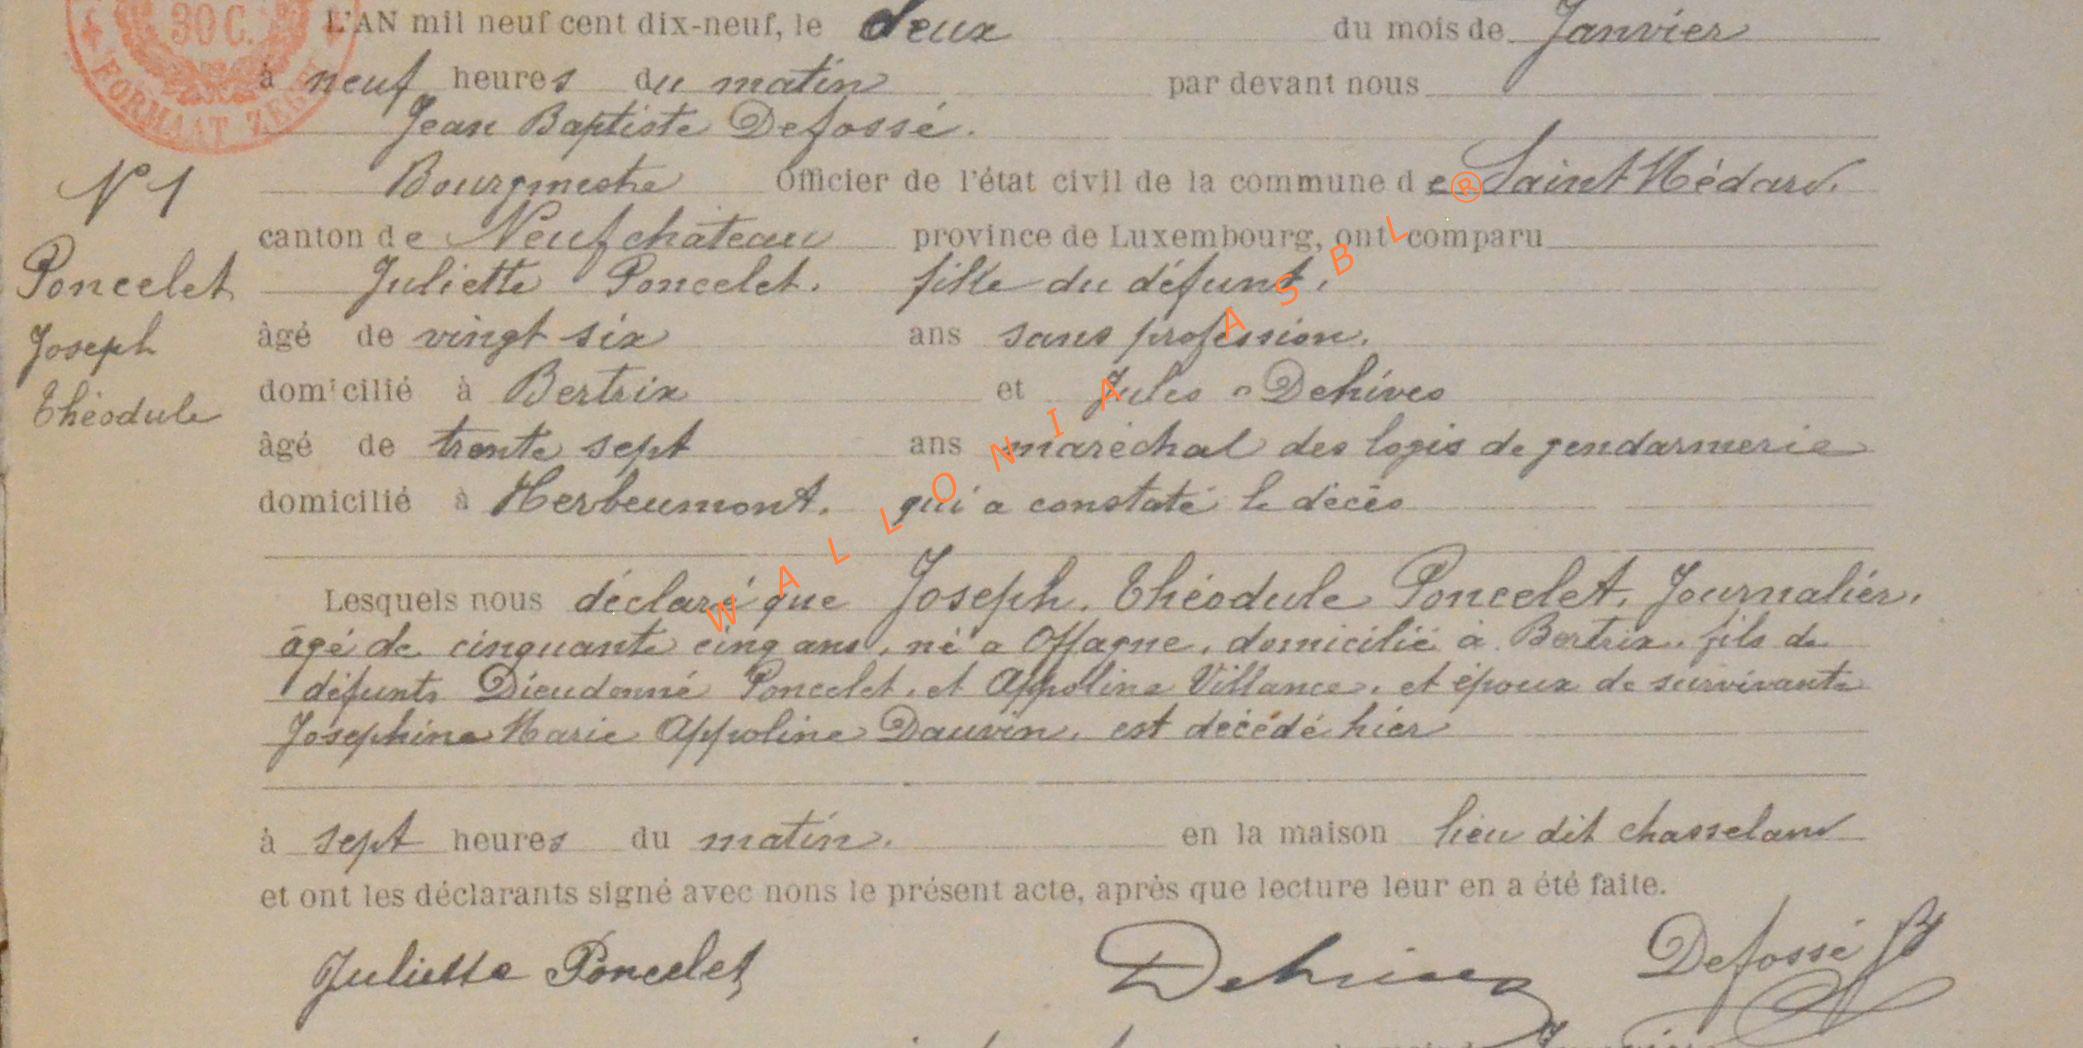 30 C.
FORMAAT ZEGEL
L'AN mil neuf cent dix-neuf, le deux du mois de Janvier
à neuf heures du matin par devant nous
Jean Baptiste Defossé.
Bourgmestre Officier de l'état civil de la commune de Saint Médard.
canton de Neufchateau province de Luxembourg, ont comparu
Juliette Poncelet. fille du défunt,
âgé de vingt six ans sans profession.
domicilié à Bertrix et Jules Dehives
âgé de trente sept ans maréchal des logis de gendarmerie
domicilié à Herbeumont. qui a constaté le décès
N° 1
Poncelet
Joseph
Théodule
Lesquels nous déclaré que Joseph. Théodule Poncelet. Journalier.
âgé de cinquante cinq ans, né a Offagne, domicilié à Bertrix. fils de
défunts Dieudonné Poncelet, et Appoline Villance. et époux de survivante
Josephine Marie Appoline Dauvin, est décédé hier
à sept heures du matin. en la maison lieu dit chasseland
et ont les déclarants signé avec nous le présent acte, après que lecture leur en a été faite.
Juliette Poncelet Defossé JB
WALLONIA ASBL ®